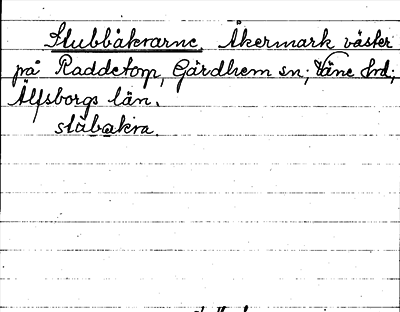 Stubbåkrarne. Åkermark väster
på Raddetorp, Gärdhem sn; Väne hrd;
Älfsborgs län.
stäbakra.